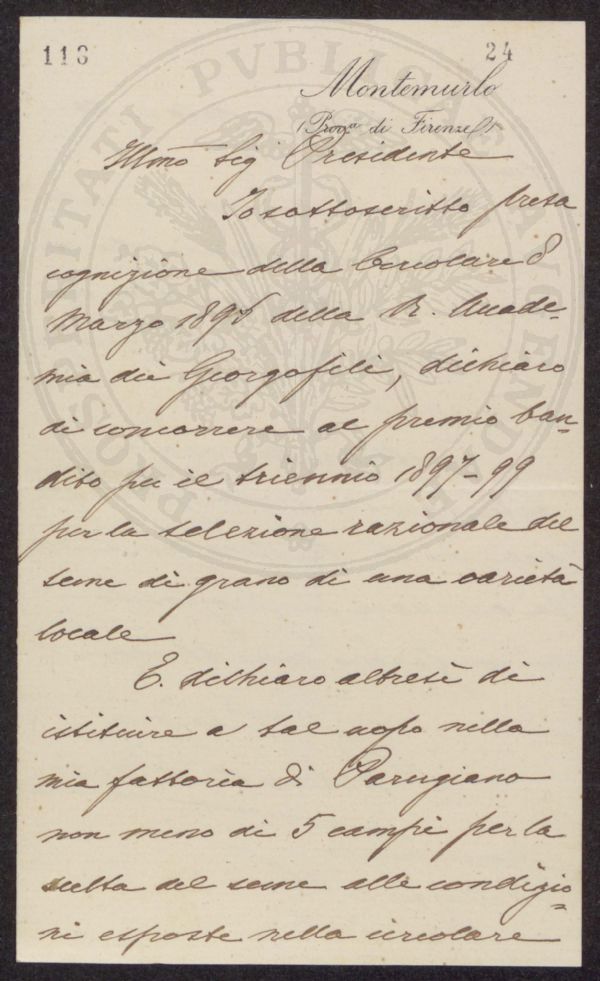 116
24
PROSPERITATI PVBLICAE AVGENDAE
Montemurlo
(Prov.a di Firenze)
Illmo Sig Presidente
Io sottoscritto presa
cognizione della Circolare 8
Marzo 1896 della R. Accade=
mia dei Georgofili, dichiaro
di concorrere al premio ban=
dito per il triennio 1897-99
per la selezione razionale del
seme di grano di una varietà
locale
E. dichiaro altresì di
istituire a tal uopo nella
mia fattoria di Parugiano
non meno di 5 campi per la
scelta del seme alle condizio=
ni esposte nella circolare